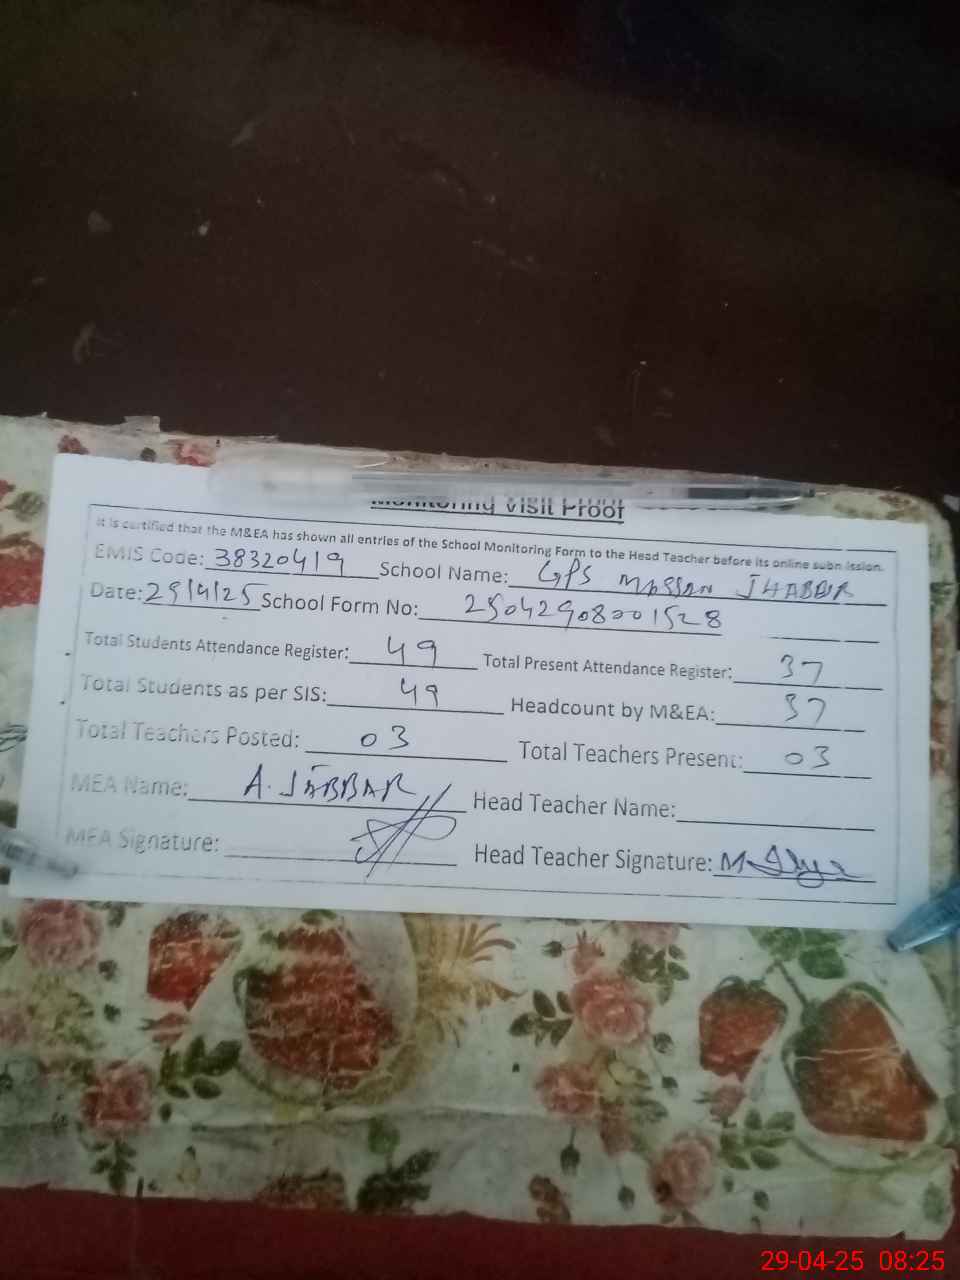 Monitoring Visit Proof
It is certified that the M&EA has shown all entries of the School Monitoring Form to the Head Teacher before its online submission.
EMIS Code: 38320419 School Name: GPS MASSAN JHABBR
Date: 29/4/25 School Form No: 25042908001528
Total Students Attendance Register: 49 Total Present Attendance Register: 37
Total Students as per SIS: 49 Headcount by M&EA: 37
Total Teachers Posted: 03 Total Teachers Present: 03
MEA Name: A. JABBAR Head Teacher Name:
MEA Signature: Head Teacher Signature: M
29-04-25 08:25